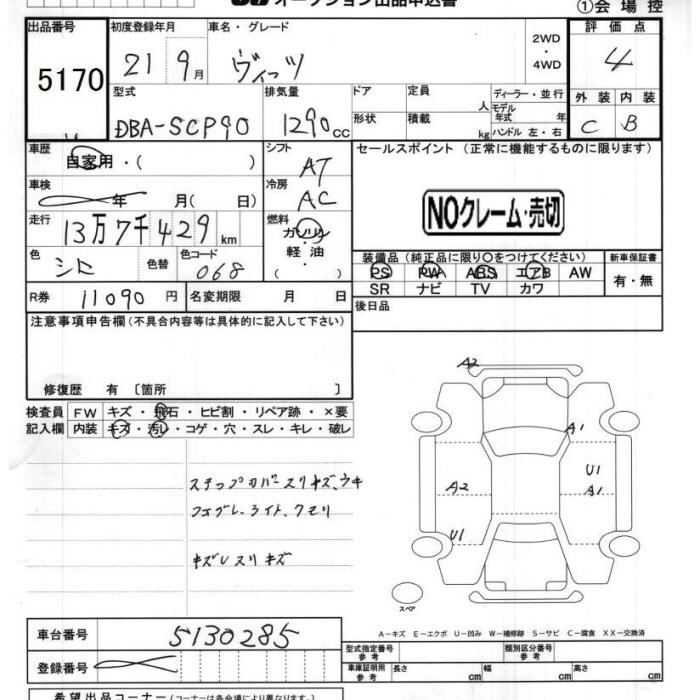 オークション出品申込書
①会場控
出品番号 初度登録年月 車名・グレード 評価点
5170 21 9月 ヴィッツ 2WD・4WD 4
型式 排気量 ドア 定員 人 ディーラー・並行 外装 内装
DBA-SCP90 1290cc 形状 積載 kg モデル年式 年 ハンドル 左・右 C B
車歴 自家用・( ) シフト AT セールスポイント (正常に機能するものに限ります)
車検 年 月( 日) 冷房 AC
NOクレーム・売切
走行 13万7千429km 燃料 ガソリン 軽・油 ( )
色 シロ 色替 色コード 068
装備品 (純正品に限り○をつけてください) 新車保証書
PS PW ABS エアB AW 有・無
SR ナビ TV カワ
R券 11090円 名変期限 月 日 後日品
注意事項申告欄(不具合内容等は具体的に記入して下さい)
修復歴 有 〔箇所 〕
検査員 FW キズ・飛石・ヒビ割・リペア跡・×要
記入欄 内装 キズ・汚レ・コゲ・穴・スレ・キレ・破レ
A2
A1
ステップカバースリキズ、ウキ U1
A2 A1
フェグレ、ライト、クモリ
U1
キズUスリキズ
スペア
A-キズ E-エクボ U-凹み W-補修跡 S-サビ C-腐食 XX-交換済
車台番号 5130285
型式指定番号 参考 類別区分番号 参考
登録番号 車庫証明用 参考 長さ cm 幅 cm 高さ cm
希望出品コーナー(コーナーは各会場により異なります)